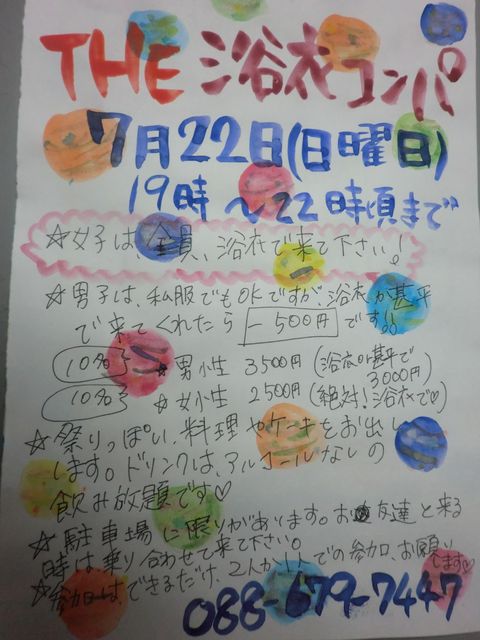 THE 浴衣コンパ
7月22日(日曜日)
19時〜22時頃まで
☆女子は、全員、浴衣で来て下さい!
☆男子は、私服でもOKですが、浴衣か甚平
で来てくれたら -500円です!!
10名 ☆男性 3500円 (浴衣か甚平で
3000円)
10名 ☆女性 2500円 (絶対!浴衣で♡)
☆祭りっぽい、料理やケーキをお出し
します。ドリンクは、アルコールなしの
飲み放題です♡
☆駐車場に限りがあります。お友達と来る
時は乗り合わせて来て下さい。
☆参加は、できるだけ、2人か1人での参加、お願い
します♡
088-679-7447